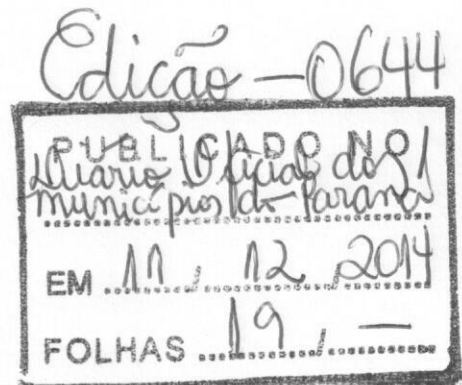 Edição - 0644
PUBLICADO NO
Diário Oficial dos
Municípios do Paraná
EM 11, 12, 2014
FOLHAS 19, —